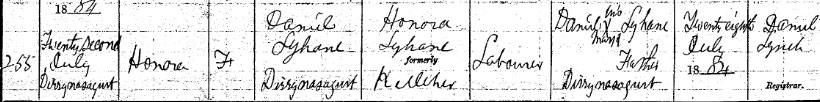 1884
255
Twenty second
July
Dirrynasagurt
Honora
F
Daniel
Lyhane
Dirrynasagurt
Honora
Lyhane
formerly
Kelleher
Labourer
Daniel Lyhane
his
mark
Father
Dirrynasagurt
Twenty eighth
July
1884
Daniel
Lynch
Registrar.